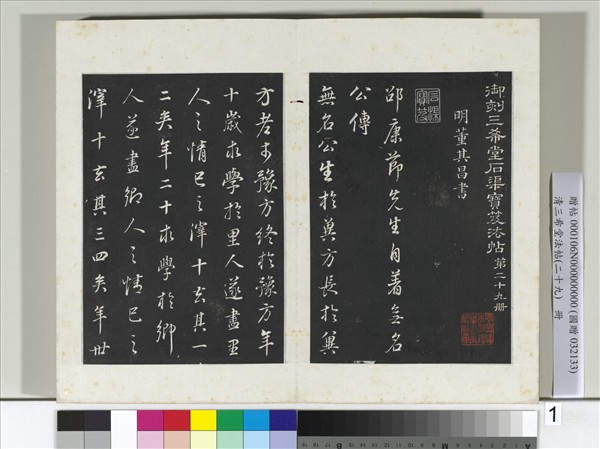 御刻三希堂石渠寶笈法帖第二十九册
明董其昌書
邵康節先生自著無名
公傳
無名公生於冀方長於冀
方老於豫方終於豫方年
十歲求學於里人遂盡里
人之情已之滓十去其一
二矣年二十求學於鄉
人遂盡鄉人之情已之
滓十去其三四矣年卅
贈帖 000106N000000000 (國贈 032133)
清三希堂法帖(二十九) 冊
1